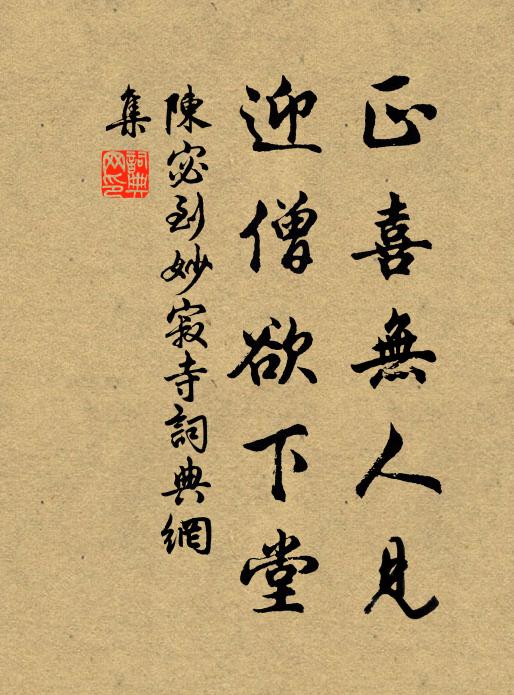 正喜無人見
迎僧欲下堂
陳宓到妙寂寺詞典網
集
詞典網印